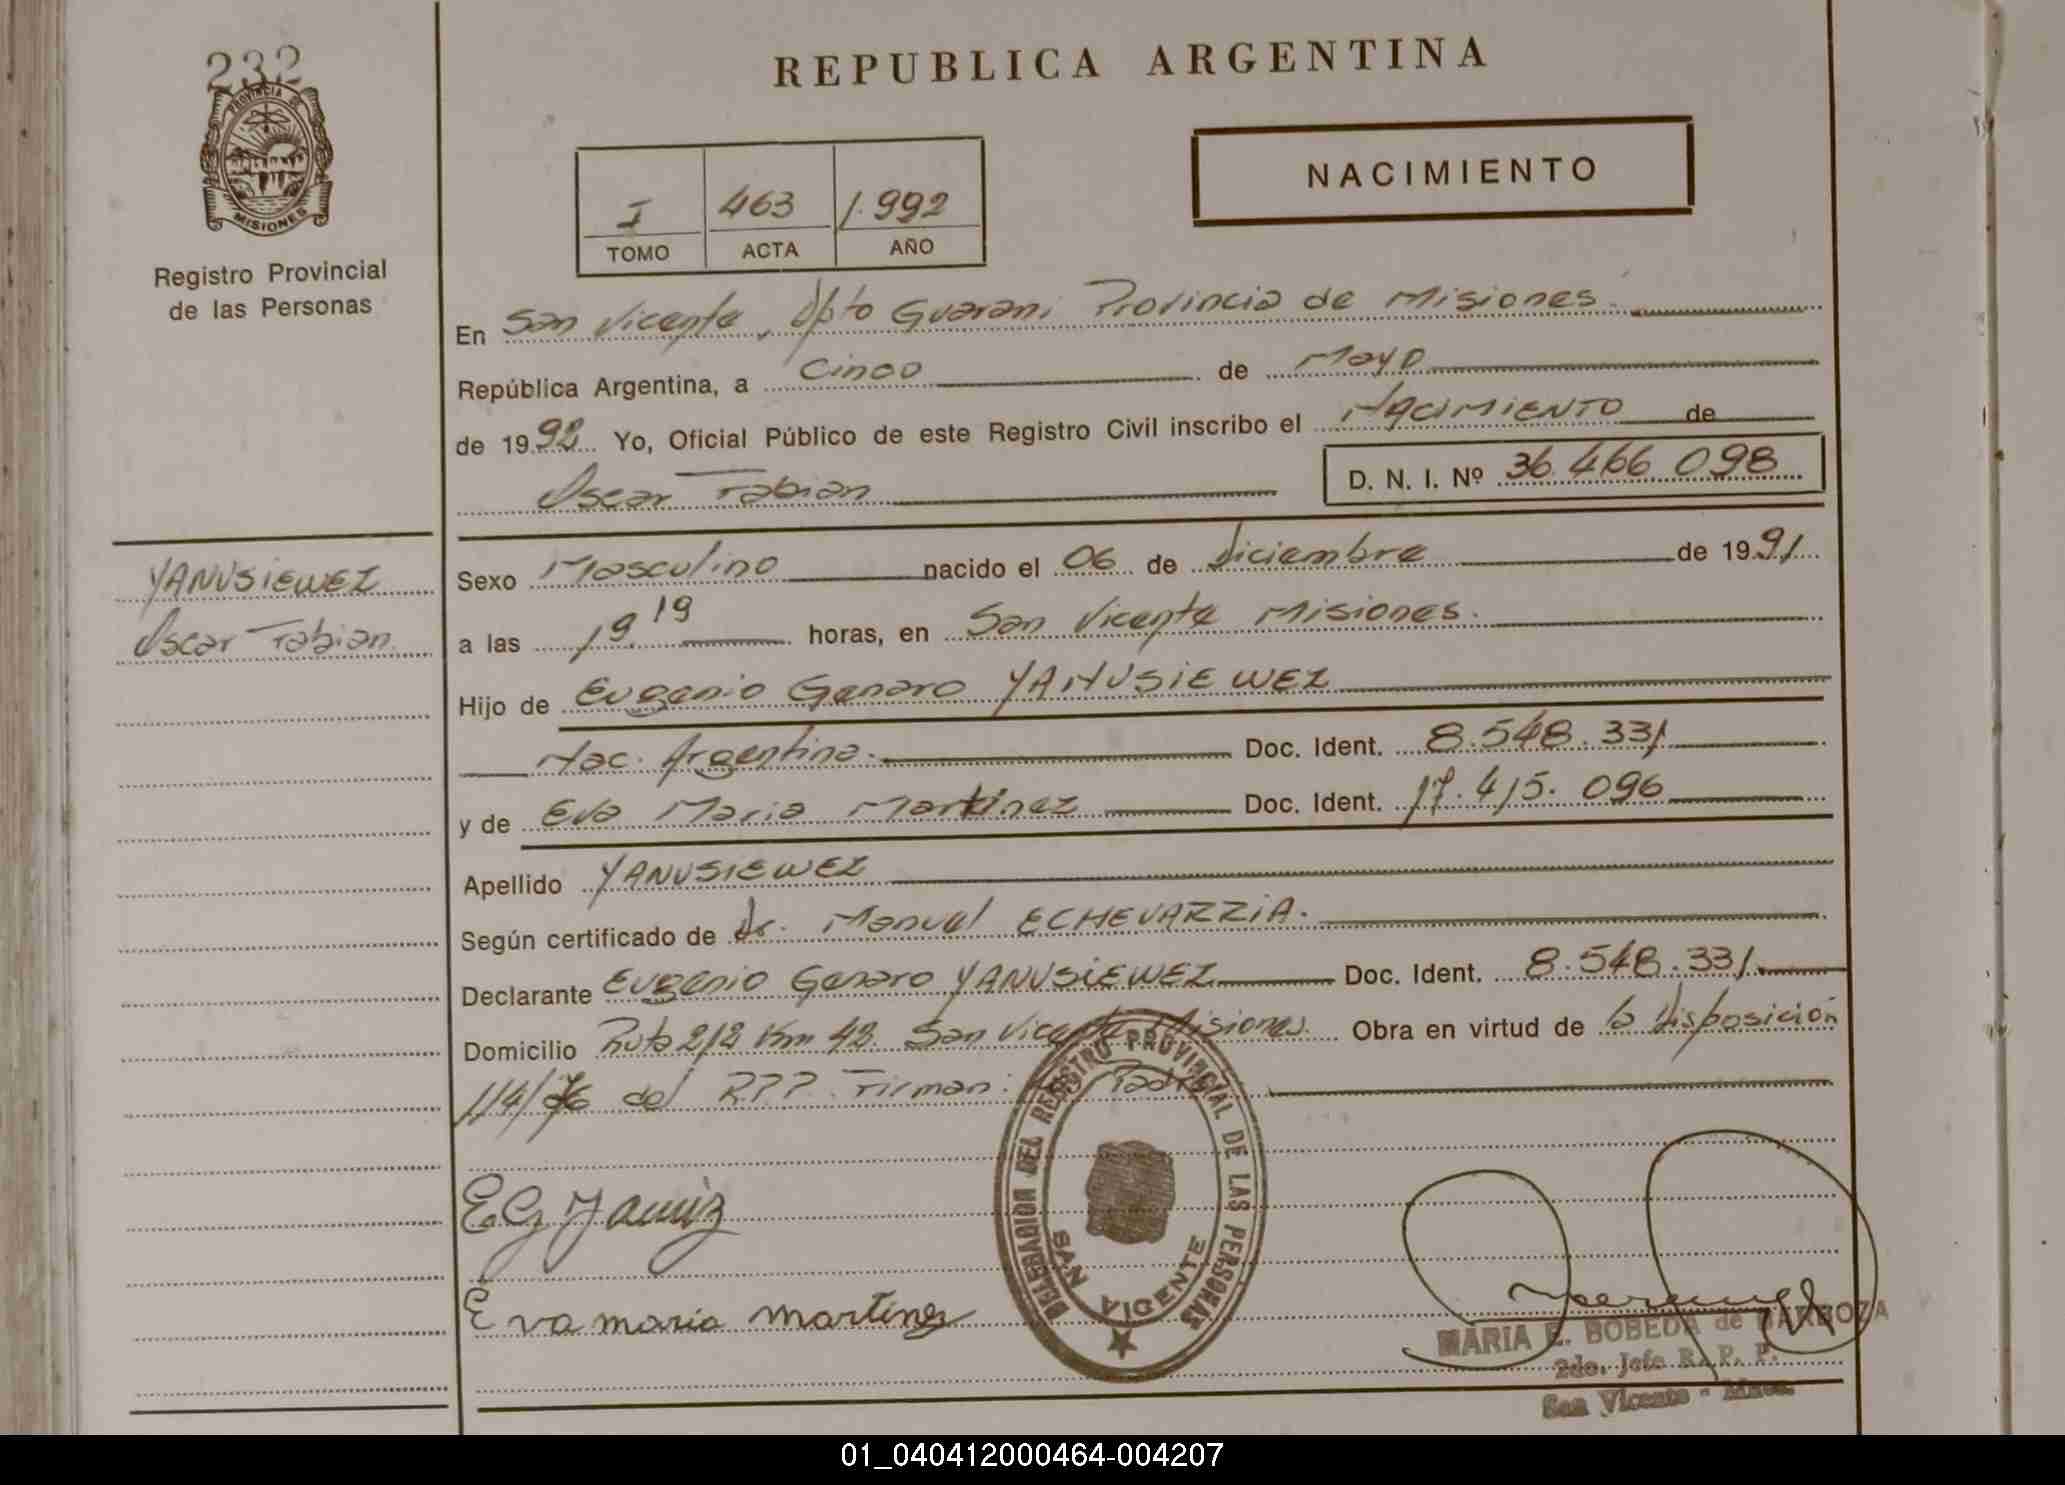 232
PROVINCIA DE
MISIONES
Registro Provincial
de las Personas
YANUSIEWEZ
Oscar Fabian.
REPUBLICA ARGENTINA
NACIMIENTO
I 463 1.992
TOMO ACTA AÑO
En San Vicente, Dpto Guarani Provincia de Misiones.
República Argentina, a Cinco de Mayo
de 1992 Yo, Oficial Público de este Registro Civil inscribo el Nacimiento de
Oscar Fabian D. N. I. Nº 36.466.098
Sexo Masculino nacido el 06 de Diciembre de 1991
a las 19 19 horas, en San Vicente Misiones.
Hijo de Eugenio Genaro YANUSIEWEZ
Nac. Argentina. Doc. Ident. 8.548.331
y de Eva Maria Martinez Doc. Ident. 17.415.096
Apellido YANUSIEWEZ
Según certificado de Dr. Manuel ECHEVARZIA.
Declarante Eugenio Genaro YANUSIEWEZ Doc. Ident. 8.548.331
Domicilio Ruta 212 Km 42. San Vicente Misiones. Obra en virtud de la Disposición
114/76 del R.P.P. Firman: Padres
E. G. Yanuiz
Eva maria martinez
DELEGACION DEL REGISTRO PROVINCIAL DE LAS PERSONAS
SAN VICENTE
MARIA E. BOBEDA de BARBOZA
2do. Jefe R. P. P.
San Vicente - Mnes.
01_040412000464-004207